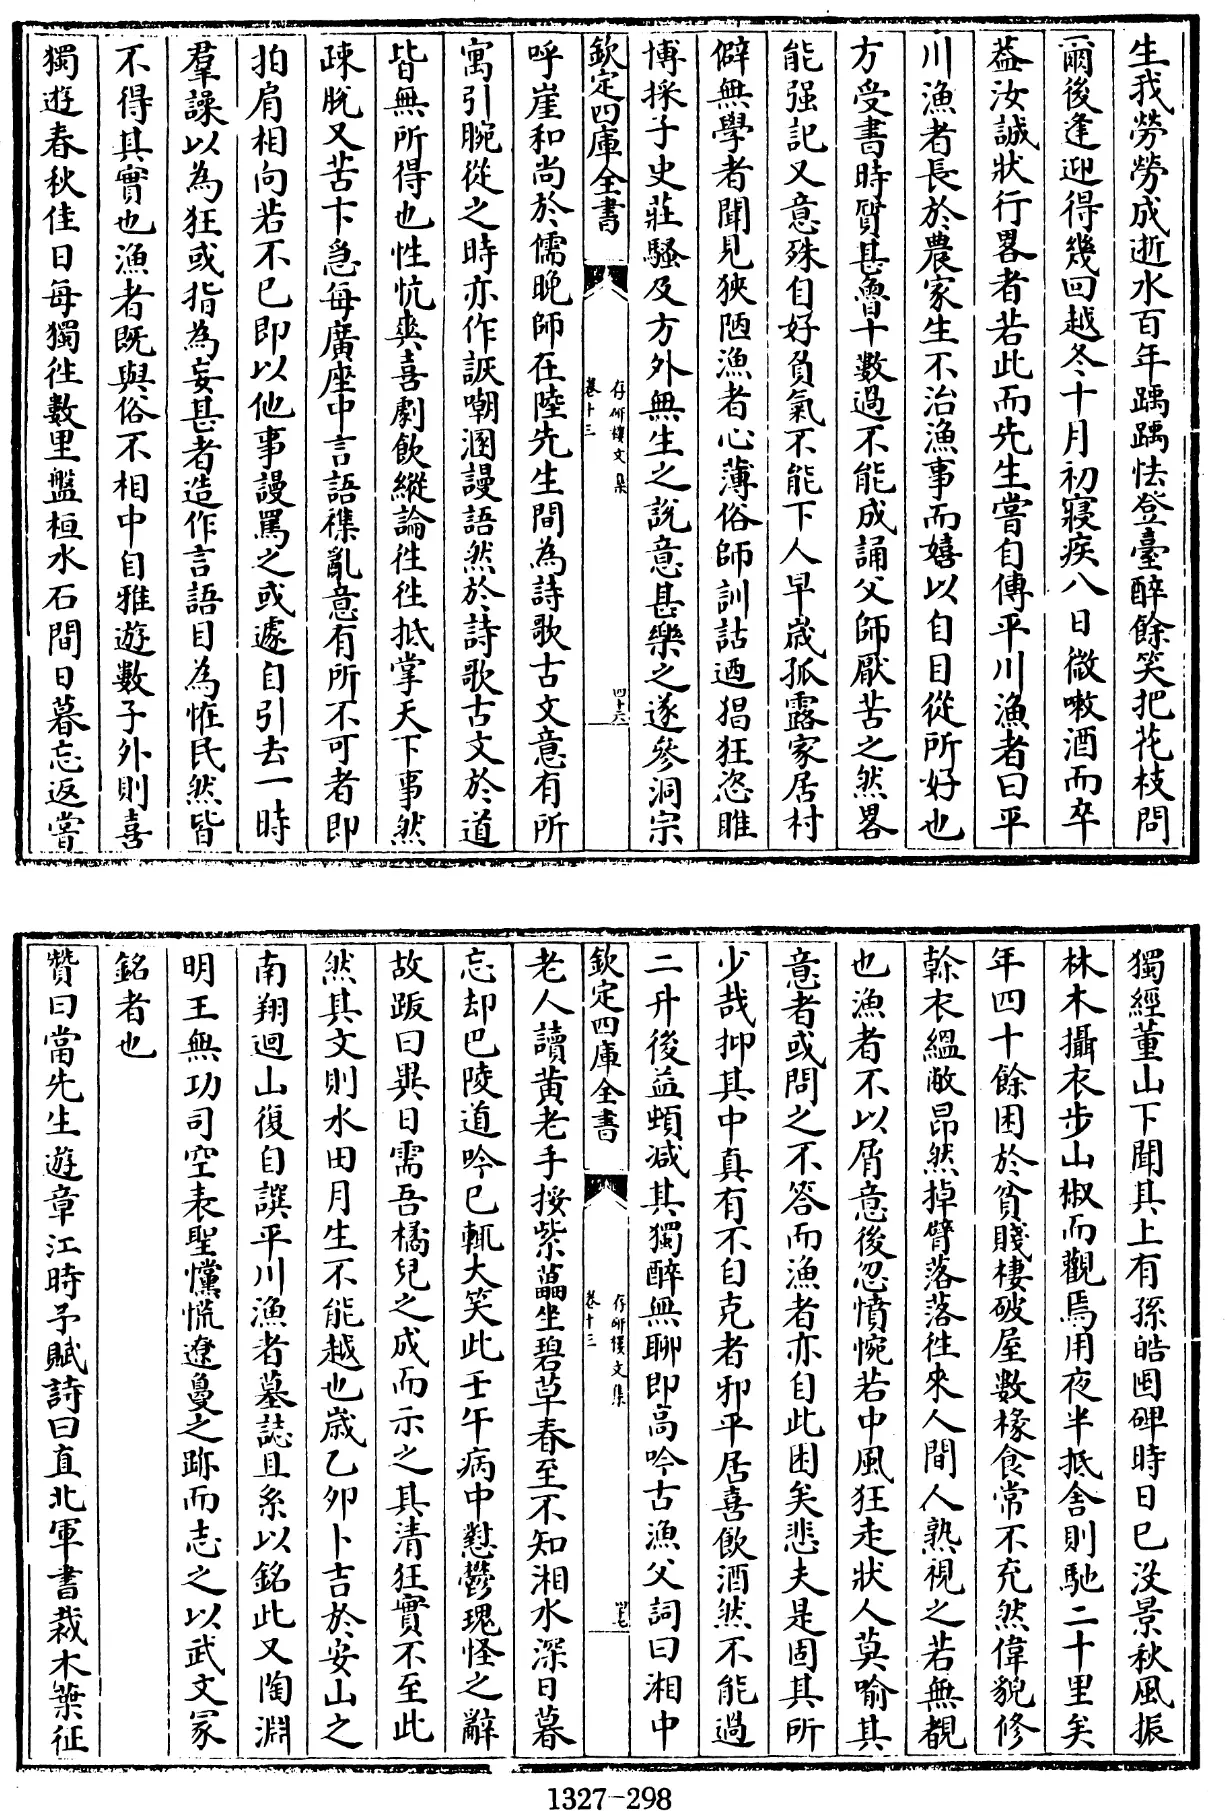 生我勞勞成逝水百年踽踽怯登臺醉餘笑把花枝問
爾後逢迎得幾回越冬十月初寢疾八日微嗽酒而卒
葢汝誠狀行畧者若此而先生嘗自傳平川漁者曰平
川漁者長於農家生不治漁事而嬉以自目從所好也
方受書時質甚魯十數過不能成誦父師厭苦之然畧
能强記又意殊自好負氣不能下人早嵗孤露家居村
僻無學者聞見狹陋漁者心薄俗師訓詁迺猖狂恣睢
博採子史莊騷及方外無生之説意甚樂之遂參洞宗
欽定四庫全書
存研樓文集
卷十三
四十六
呼崖和尚於儒晚師在陸先生間為詩歌古文意有所
寓引腕從之時亦作詼嘲溷謾語然於詩歌古文於道
皆無所得也性忼爽喜劇飲縱論徃徃抵掌天下事然
疎脱又苦卞急每廣座中言語襍亂意有所不可者即
拍肩相向若不已即以他事謾罵之或遽自引去一時
羣譟以為狂或指為妄甚者造作言語目為恠民然皆
不得其實也漁者既與俗不相中自雅遊數子外則喜
獨遊春秋佳日每獨徃數里盤桓水石間日暮忘返嘗
獨經董山下聞其上有孫皓囤碑時日已没景秋風振
林木攝衣步山椒而觀焉用夜半抵舍則馳二十里矣
年四十餘困於貧賤棲破屋數椽食常不充然偉貌修
幹衣緼敝昂然掉臂落落徃來人間人熟視之若無覩
也漁者不以屑意後忽憤惋若中風狂走狀人莫喻其
意者或問之不答而漁者亦自此困矣悲夫是固其所
少哉抑其中真有不自克者邪平居喜飲酒然不能過
二升後益蝢减其獨醉無聊即高吟古漁父詞曰湘中
欽定四庫全書
存研樓文集
卷十三
四十七
老人讀黄老手援紫藟坐碧草春至不知湘水深日暮
忘却巴陵道吟已輒大笑此壬午病中懟鬱瑰怪之辭
故跋曰異日需吾橘兒之成而示之其清狂實不至此
然其文則水田月生不能越也嵗乙卯卜吉於安山之
南翔迴山復自譔平川漁者墓誌且系以銘此又陶淵
明王無功司空表聖戃慌遼敻之跡而志之以武文冢
銘者也
贊曰當先生遊章江時予賦詩曰直北軍書裁木葉征
1327-298